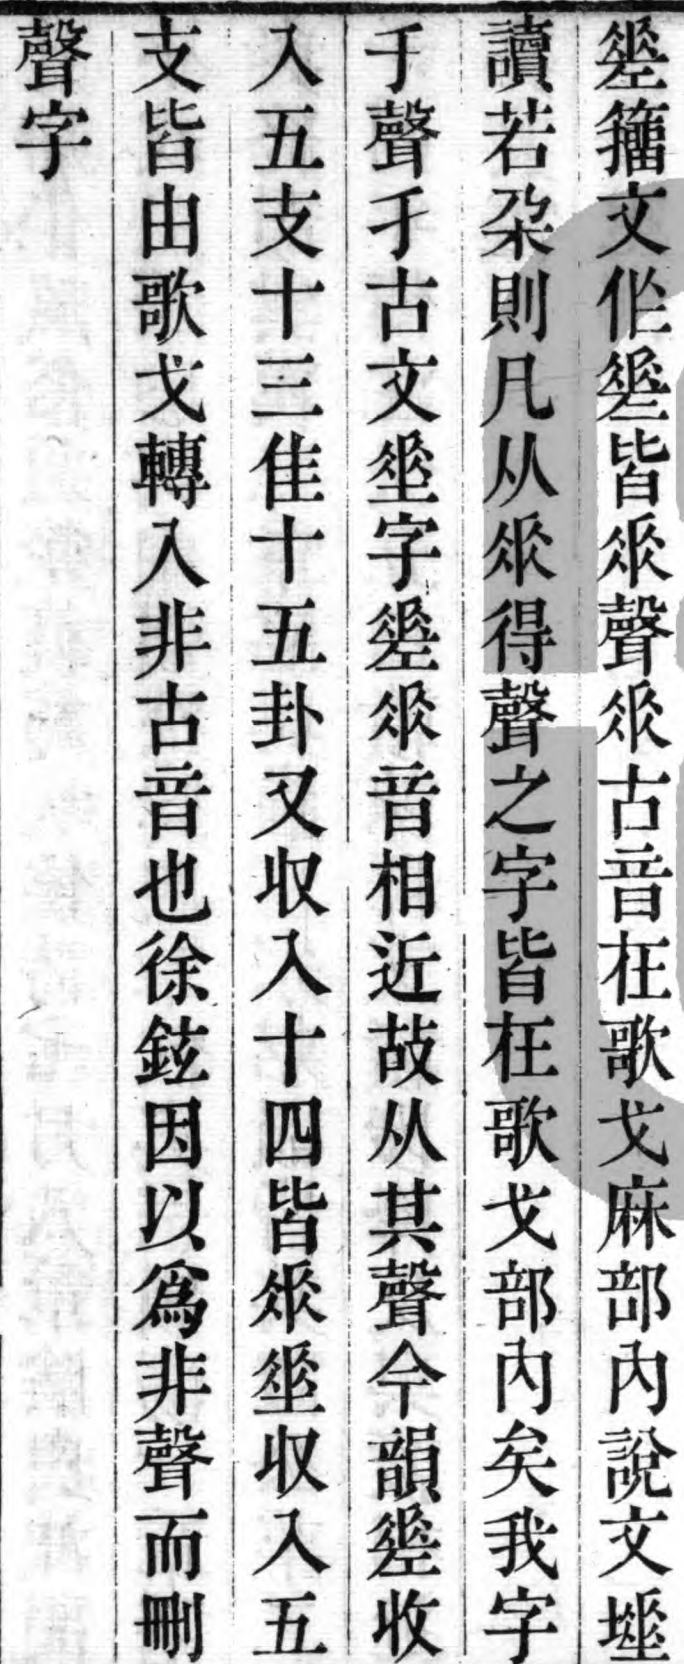 𡍮籀文作𡍮皆𠂹聲𠂹古音在歌戈麻部內說文埵
讀若朶則凡从𠂹得聲之字皆在歌戈部內矣我字
𠂒聲𠂒古文𡍮字𡍮𠂹音相近故从其聲今韻𡍮收
入五支十三佳十五卦又収入十四皆𠂹垂収入五
支皆由歌戈轉入非古音也徐鉉因以爲非聲而刪
聲字